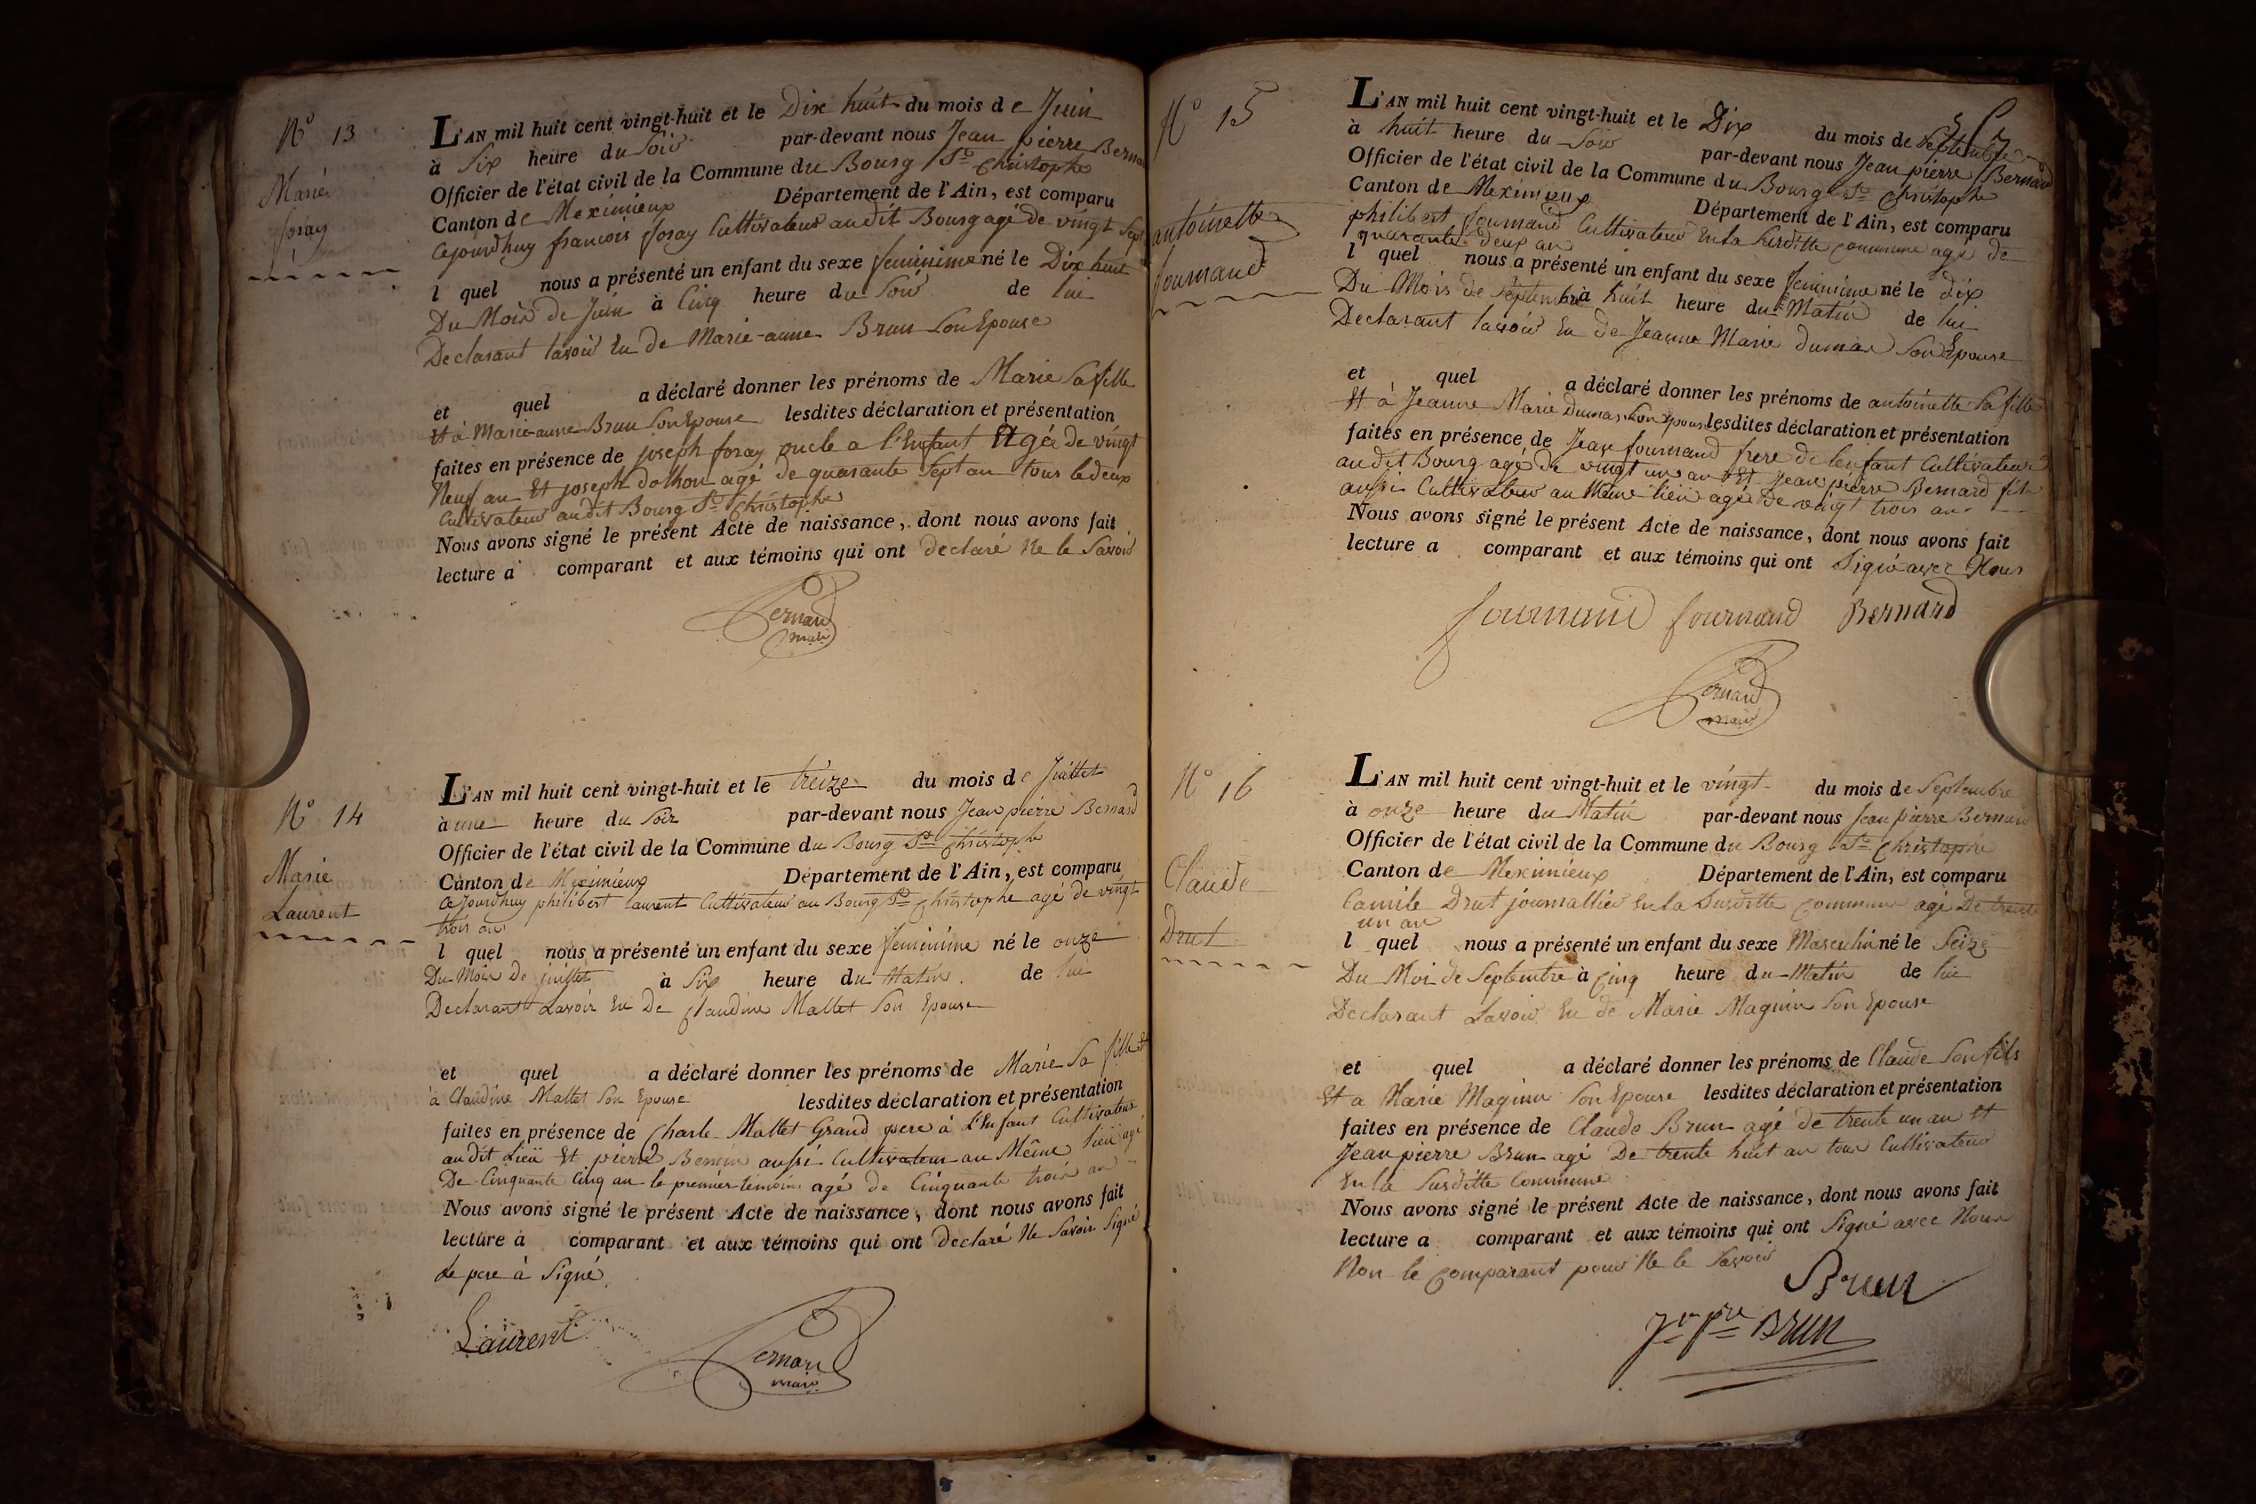 N° 13
Marie
foray
L'AN mil huit cent vingt-huit et le Dix huit du mois de Juin
à Six heure du Soir par-devant nous Jean pierre Bernar
Officier de l'état civil de la Commune du Bourg St Christophe
Canton de Meximieux Département de l'Ain, est comparu
Cejourdhuy francois foray Cultivateur audit Bourg agé de vingt sept
l quel nous a présenté un enfant du sexe feminime né le Dix huit
Du Mois de Juin à Cinq heure du Soir de lui
Declarant lavoir Eu de Marie-anne Brun Son Epouse
et quel a déclaré donner les prénoms de Marie Sa fille
Et à Marie-anne Brun Son Epouse lesdites déclaration et présentation
faites en présence de joseph foray oncle a l'Enfant Agée de vingt
Neuf an Et joseph dothon agé de quarante Sept an tous ledeux
Cultivateur audit Bourg St Christophe
Nous avons signé le présent Acte de naissance, dont nous avons fait
lecture a comparant et aux témoins qui ont declaré Ne le Savoir
Bernard
maire
N° 14
Marie
Laurent
L'AN mil huit cent vingt-huit et le treize du mois de Juillet
à une heure du Soir par-devant nous Jean pierre Bernard
Officier de l'état civil de la Commune du Bourg St Christophe
Canton de Meximieux Département de l'Ain, est comparu
Cejourdhuy philibert laurent Cultivateur au Bourg St Christophe agé de vingt
trois an
l quel nous a présenté un enfant du sexe feminime né le onze
Du Mois De juillet à Six heure du Matin de lui
Declarant Lavoir Eu De Claudine Mallet Son Epouse
et quel a déclaré donner les prénoms de Marie Sa fille Et
à Claudine Mallet Son Epouse lesdites déclaration et présentation
faites en présence de Charle Mallet Grand pere à L'Enfant Cultivateur
audit Lieu Et pierre aussi Cultivateur au Même lieu agé
De Cinquante Cinq an le premier temoin agé de Cinquante trois an
Nous avons signé le présent Acte de naissance, dont nous avons fait
lecture à comparant et aux témoins qui ont declaré Ne Savoir Signé
Le pere à Signé
Laurent
Bernard
maire
N° 15
antoinette
fournand
L'AN mil huit cent vingt-huit et le Dix du mois de Septembre
à huit heure du Soir par-devant nous Jean pierre Bernard
Officier de l'état civil de la Commune du Bourg St Christophe
Canton de Meximieux Département de l'Ain, est comparu
philibert fournand Cultivateur En la Susditte commune agé de
quarante deux an
l quel nous a présenté un enfant du sexe feminime né le dix
Du Mois de Septembre à huit heure du Matin de lui
Declarant lavoir Eu de Jeanne Marie dumas Son Epouse
et quel a déclaré donner les prénoms de antoinette Sa fille
Et à Jeanne Marie Dumas Son Epouse lesdites déclaration et présentation
faites en présence de Jean fournand frere de lenfant Cultivateur
audit Bourg agé de vingt un an Et Jean pierre Bernard fils
aussi Cultivateur au Même lieu agé De vingt trois an
Nous avons signé le présent Acte de naissance, dont nous avons fait
lecture a comparant et aux témoins qui ont Signé avec Nous
fournand fournand Bernard
Bernard
maire
N° 16
Claude
Drut
L'AN mil huit cent vingt-huit et le vingt du mois de Septembre
à onze heure du Matin par-devant nous Jean pierre Bernard
Officier de l'état civil de la Commune du Bourg St Christophe
Canton de Meximieux Département de l'Ain, est comparu
Camile Drut journallier En la Susditte commune agé De trente
un an
l quel nous a présenté un enfant du sexe Masculin né le Seize
Du Moi de Septembre à Cinq heure du Matin de lui
Declarant Lavoir Eu de Marie Magnin Son Epouse
et quel a déclaré donner les prénoms de Claude Son fils
Et a Marie Magnin Son Epouse lesdites déclaration et présentation
faites en présence de Claude Brun agé de trente un an Et
Jean pierre Brun agé De trente huit an tous Cultivateur
En la Susditte Commune
Nous avons signé le présent Acte de naissance, dont nous avons fait
lecture a comparant et aux témoins qui ont Signé avec Nous
Non le Comparant pour Ne le Savoir
Brun
Jn Pre Brun